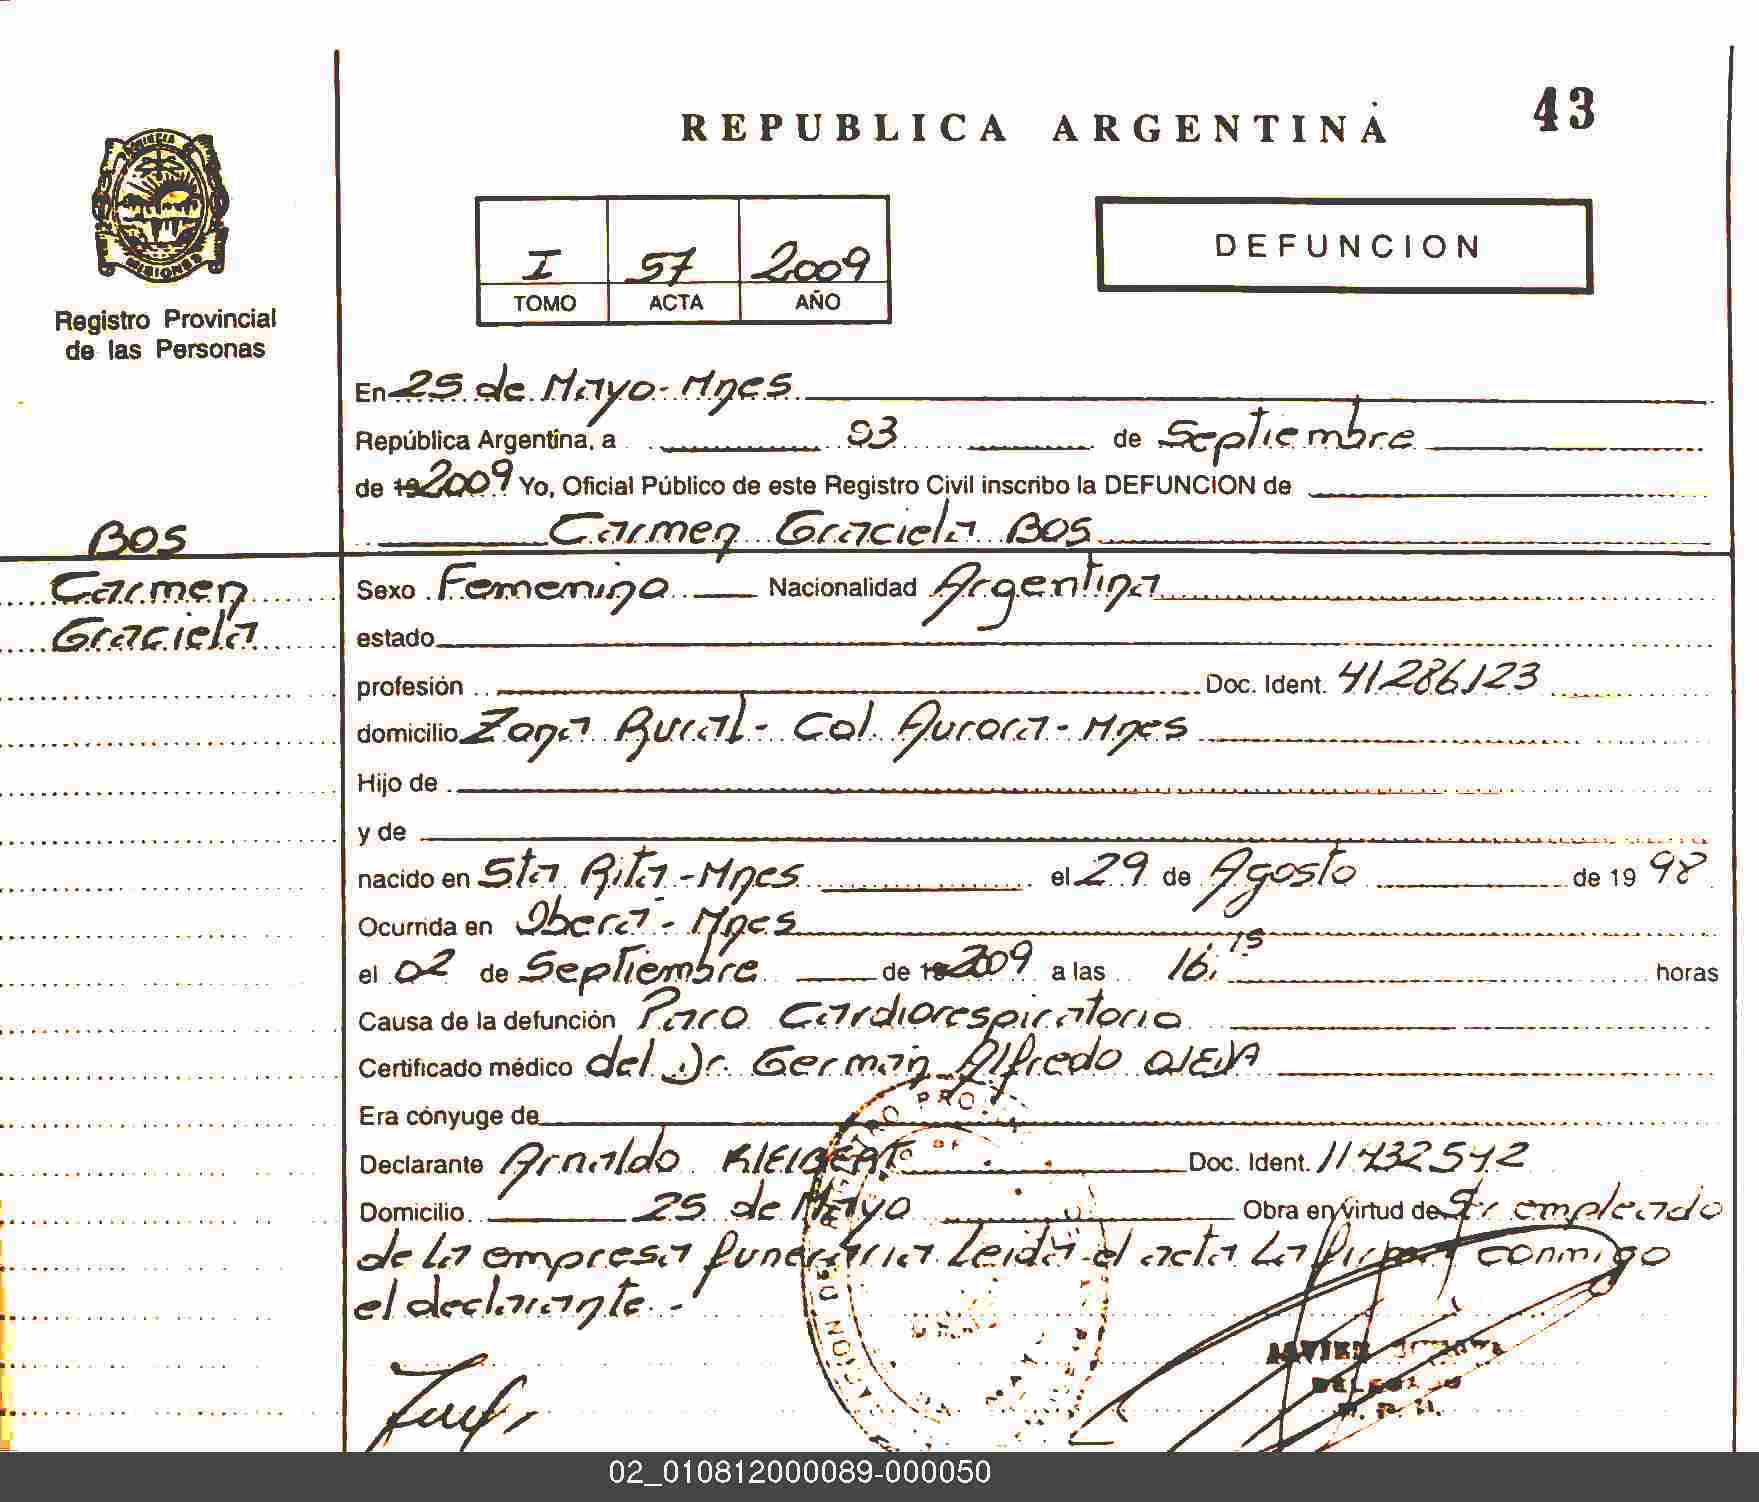 REPUBLICA ARGENTINA
43
PROVINCIA
MISIONES
Registro Provincial
de las Personas
I 57 2009
TOMO ACTA AÑO
DEFUNCION
En 25 de Mayo - Mnes
República Argentina, a 03 de Septiembre
de 19 2009 Yo, Oficial Público de este Registro Civil inscribo la DEFUNCION de
Carmen Graciela BOS
BOS
Carmen
Graciela
Sexo Femenino Nacionalidad Argentina
estado
profesión Doc. Ident. 41.286.123
domicilio Zona Rural - Col. Aurora - Mnes
Hijo de
y de
nacido en Sta Rita - Mnes el 29 de Agosto de 19 98
Ocurrida en Oberá - Mnes
el 02 de Septiembre de 19 2009 a las 16.15 horas
Causa de la defunción Paro Cardiorespiratorio
Certificado médico del Dr. Germán Alfredo OJEDA
Era cónyuge de
Declarante Arnaldo Doc. Ident. 11.432.542
Domicilio 25 de Mayo Obra en virtud de Ser empleado
de la empresa funeraria Leida el acta La firma conmigo
el declarante. -
JAVIER
02_010812000089-000050